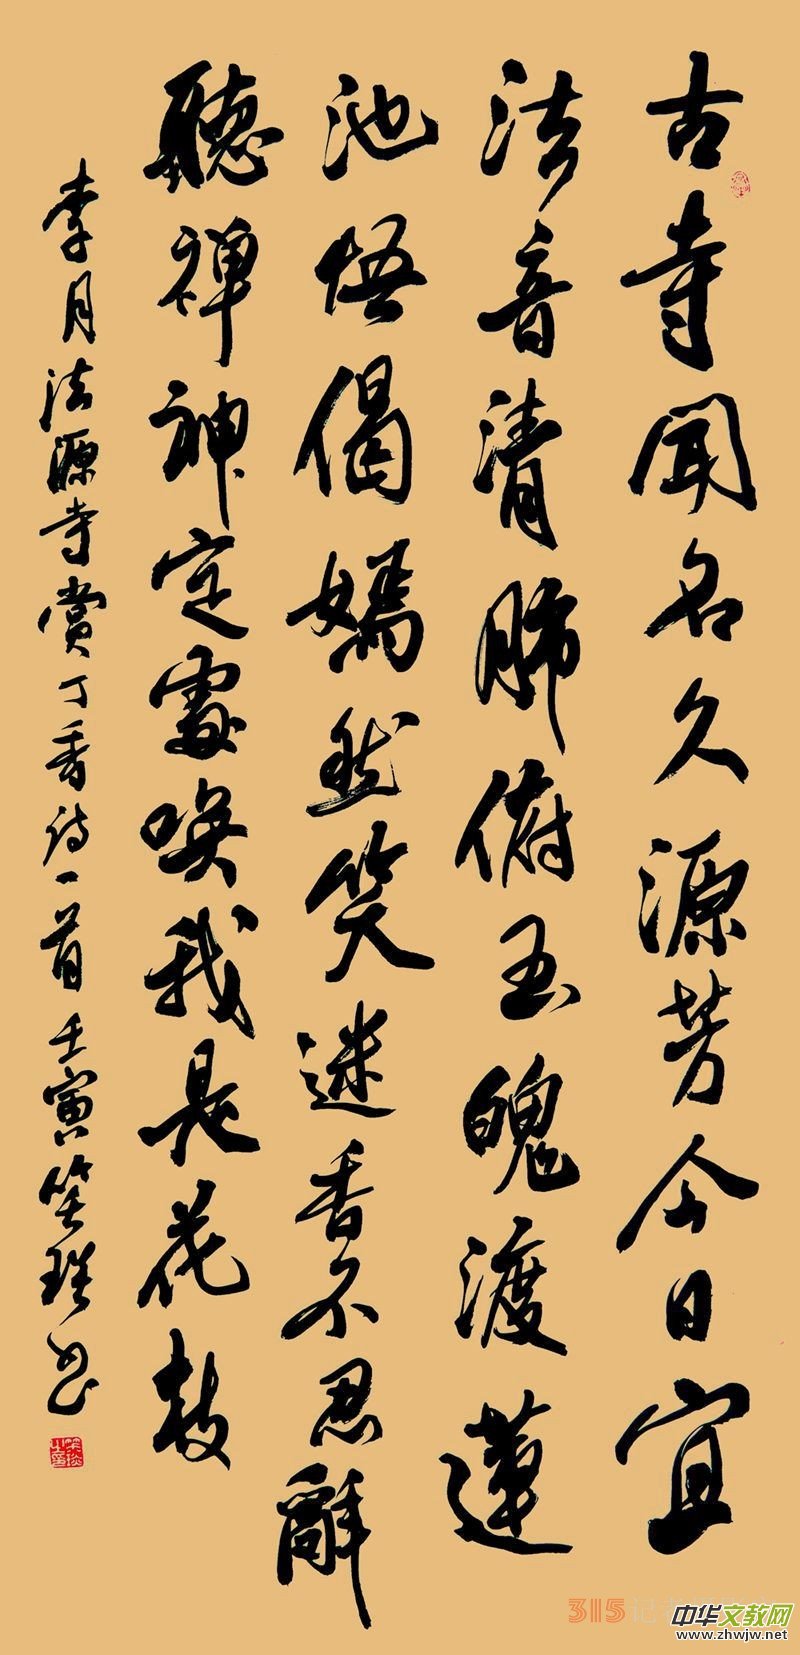 古寺聞名久源芳今日宜
法音清肺俯玉魄渡蓮
池悟偈嫣然笑迷香不忍辭
聽禪神定處喚我是花枝
李月法源寺賞丁香诗一首 壬寅笑琰书
315记者
中华文教网
www.zhwjw.net